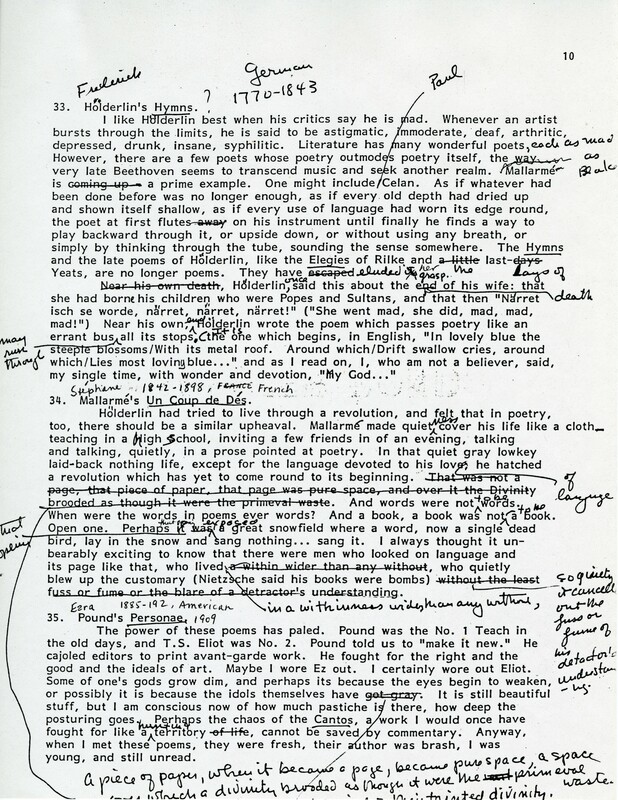 10
Frederick
German
Paul
?
1770-1843
33. Hölderlin's Hymns.
I like Hölderlin best when his critics say he is mad. Whenever an artist
bursts through the limits, he is said to be astigmatic, immoderate, deaf, arthritic,
depressed, drunk, insane, syphilitic. Literature has many wonderful poets, each as mad
as
Blake
However, there are a few poets whose poetry outmodes poetry itself, the way
very late Beethoven seems to transcend music and seek another realm. Mallarmé
is coming up a prime example. One might include/Celan. As if whatever had
been done before was no longer enough, as if every old depth had dried up
and shown itself shallow, as if every use of language had worn its edge round,
the poet at first flutes away on his instrument until finally he finds a way to
play backward through it, or upside down, or without using any breath, or
simply by thinking through the tube, sounding the sense somewhere. The Hymns
and the late poems of Hölderlin, like the Elegies of Rilke and a little last days
Yeats, are no longer poems. They have escaped eluded her grasp. the days of
Near his own death, Hölderlin, once said this about the end of his wife: that
death
she had borne his children who were Popes and Sultans, and that then "Närret
isch se worde, närret, närret, närret!" ("She went mad, she did, mad, mad,
mad!") Near his own end, Hölderlin wrote the poem which passes poetry like an
errant bus all its stops. (the one which begins, in English, "In lovely blue the
steeple blossoms/With its metal roof. Around which/Drift swallow cries, around
which/Lies most loving blue..." and as I read on, I, who am not a believer, said,
my single time, with wonder and devotion, "My God..."
may
run
through
Stephane 1842-1898, FRANCE French
34. Mallarmé's Un Coup de Dés.
Hölderlin had tried to live through a revolution, and felt that in poetry,
too, there should be a similar upheaval. Mallarmé made quietness cover his life like a cloth
teaching in a High School, inviting a few friends in of an evening, talking
and talking, quietly, in a prose pointed at poetry. In that quiet gray lowkey
laid-back nothing life, except for the language devoted to his love, he hatched
a revolution which has yet to come round to its beginning. That was not a
page, that piece of paper, that page was pure space, and over it the Divinity
brooded as though it were the primeval waste. And words were not to be words.
of
language
When were the words in poems ever words? And a book, a book was not to be a book.
Open one. Perhaps it was exposed a great snowfield where a word, now a single dead
bird, lay in the snow and sang nothing... sang it. I always thought it un-
bearably exciting to know that there were men who looked on language and
its page like that, who lived a within wider than any without, who quietly
blew up the customary (Nietzsche said his books were bombs) without the least
fuss or fume or the blare of a detractor's understanding.
that
opening
in a withinness wider than any without,
so quietly
it cancelled
out the
fuss or
fume of
his
detractor's
understan
-ing.
Ezra 1885-192, American
35. Pound's Personae, 1909
The power of these poems has paled. Pound was the No. 1 Teach in
the old days, and T.S. Eliot was No. 2. Pound told us to "make it new." He
cajoled editors to print avant-garde work. He fought for the right and the
good and the ideals of art. Maybe I wore Ez out. I certainly wore out Eliot.
Some of one's gods grow dim, and perhaps its because the eyes begin to weaken,
or possibly it is because the idols themselves have got gray. It is still beautiful
stuff, but I am conscious now of how much pastiche there is, how deep the
posturing goes. Perhaps the chaos of the Cantos, a work I would once have
fought for like hunting territory of life, cannot be saved by commentary. Anyway,
when I met these poems, they were fresh, their author was brash, I was
young, and still unread.
A piece of paper, when it became a page, became pure space, a space
which a divinity brooded as though it were the primeval
waste.